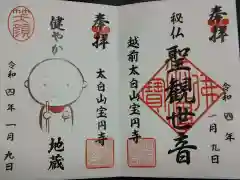 奉拝
秘仏
聖観世音
越前太白山宝円寺
令和四年一月九日
奉拝
健やか
地蔵
太白山宝円寺
令和四年一月九日